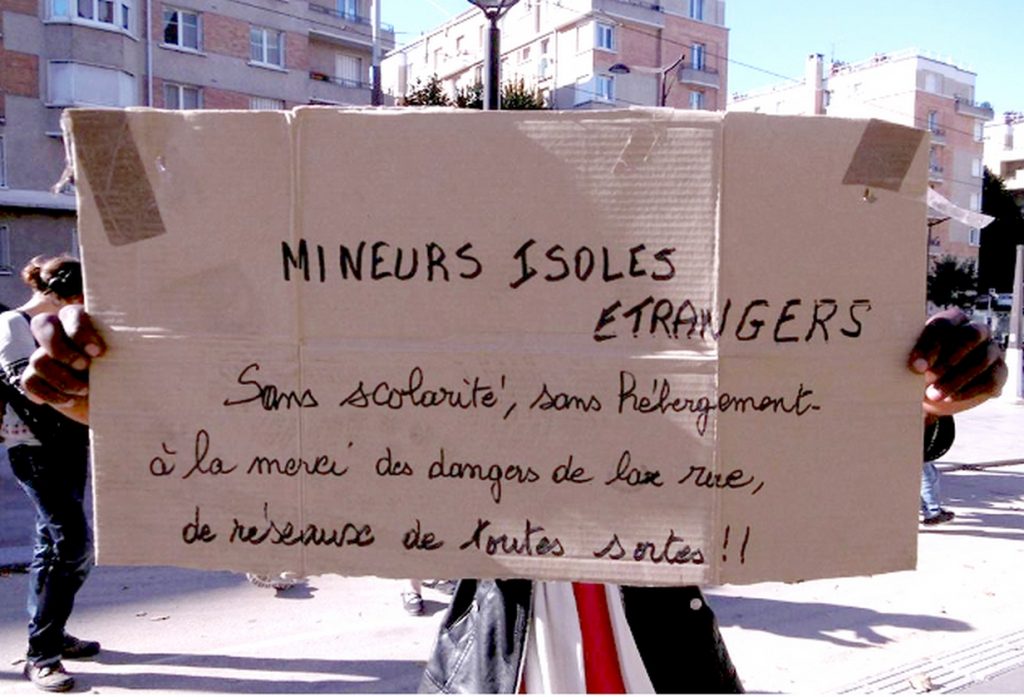 MINEURS ISOLES
ETRANGERS
Sans scolarité, sans hébergement
à la merci des dangers de la rue,
de réseaux de toutes sortes !!